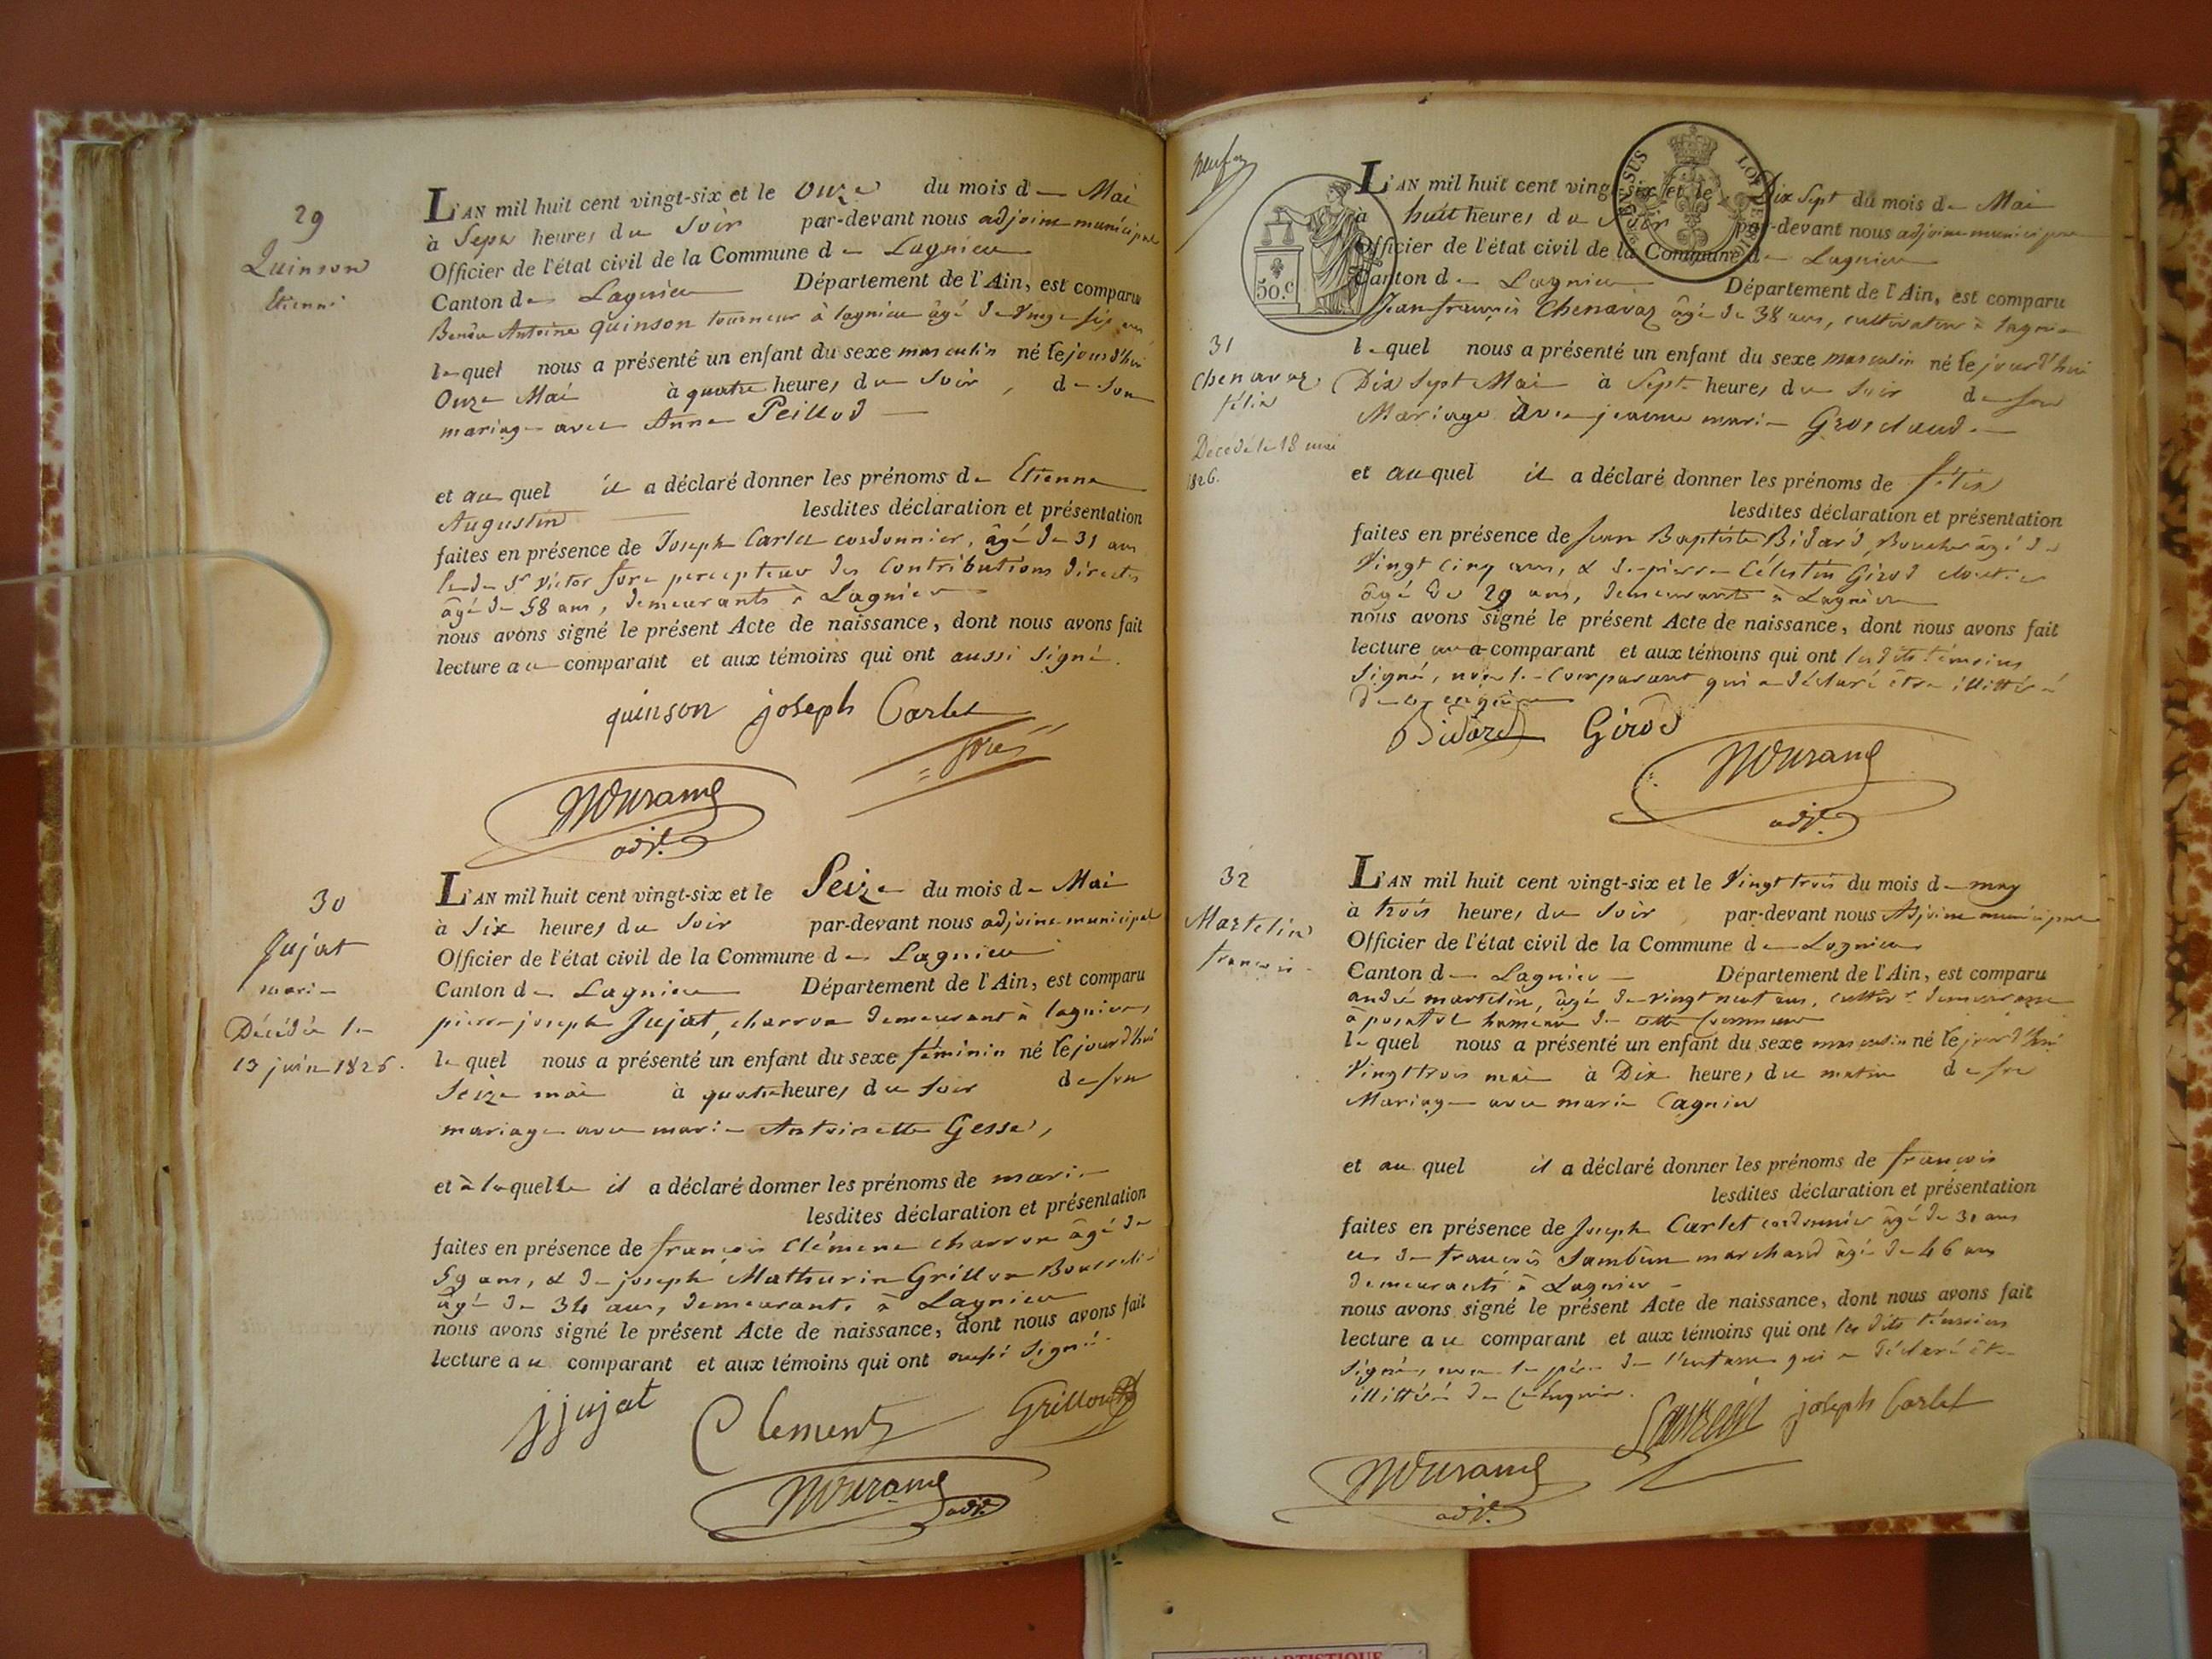 29
Quinson
Etienne
L'AN mil huit cent vingt-six et le Onze du mois de Mai
à Sept heures du Soir par-devant nous adjoint municipal
Officier de l'état civil de la Commune de Lagnieu
Canton de Lagnieu Département de l'Ain, est comparu
Benoit Antoine quinson tourneur à lagnieu âgé de Vingt six ans
lequel nous a présenté un enfant du sexe masculin né le jourd'hui
Onze Mai à quatre heures du Soir, de son
mariage avec Anne Peillod
et au quel il a déclaré donner les prénoms de Etienne
Augustin lesdites déclaration et présentation
faites en présence de Joseph Carlet cordonnier, âgé de 31 ans
de Sr Victor fore percepteur des Contributions directes
âgé de 58 ans, demeurants à Lagnieu
nous avons signé le présent Acte de naissance, dont nous avons fait
lecture au comparant et aux témoins qui ont aussi signé.
quinson joseph Carlet
foré
adjt.
30
Jujat
marie
Décédée le
13 juin 1826.
L'AN mil huit cent vingt-six et le Seize du mois de Mai
à Six heures du Soir par-devant nous adjoint municipal
Officier de l'état civil de la Commune de Lagnieu
Canton de Lagnieu Département de l'Ain, est comparu
pierre joseph Jujat, charron demeurant à lagnieu,
lequel nous a présenté un enfant du sexe féminin né le jourd'hui
Seize mai à quatre heures du Soir de son
mariage avec marie Antoinette Gesse,
et à laquelle il a déclaré donner les prénoms de marie
lesdites déclaration et présentation
faites en présence de françois Clément charron âgé de
59 ans, & de joseph Mathurin Grillon Bourrelier
âgé de 34 ans, demeurants à Lagnieu
nous avons signé le présent Acte de naissance, dont nous avons fait
lecture au comparant et aux témoins qui ont aussi signé.
jjujat Clement Grillon
adjt.
50.c
31
Chenavaz
félix
Décédé le 18 mai
1826.
L'AN mil huit cent vingt-six et le Dix Sept du mois de Mai
à huit heures du Soir par-devant nous adjoint municipal
Officier de l'état civil de la Commune de Lagnieu
Canton de Lagnieu Département de l'Ain, est comparu
Jean françois Chenavaz âgé de 38 ans, cultivateur à lagnieu
lequel nous a présenté un enfant du sexe masculin né le jourd'hui
Dix Sept Mai à Sept heures du Soir de son
Mariage avec jeanne marie Grosclaud
et au quel il a déclaré donner les prénoms de félix
lesdites déclaration et présentation
faites en présence de Jean Baptiste Bidard, Boucher âgé de
Vingt cinq ans, & de pierre Célestin Girod cloutier
âgé de 29 ans, demeurants à Lagnieu
nous avons signé le présent Acte de naissance, dont nous avons fait
lecture au comparant et aux témoins qui ont lesdits témoins
signé, non le comparant qui a déclaré être illitéré
de ce enquis
Bidard Girod
adjt.
32
Martelin
françois
L'AN mil huit cent vingt-six et le Vingt trois du mois de may
à trois heures du Soir par-devant nous Adjoint municipal
Officier de l'état civil de la Commune de Lagnieu
Canton de Lagnieu Département de l'Ain, est comparu
andré martelin, âgé de vingt neuf ans, cultivr. demeurant
à posafol hameau de cette Commune
lequel nous a présenté un enfant du sexe masculin né le jourd'hui
Vingt trois mai à Dix heures du matin de son
Mariage avec marie Cagnin
et au quel il a déclaré donner les prénoms de françois
lesdites déclaration et présentation
faites en présence de Joseph Carlet cordonnier âgé de 31 ans
et de françois Sambin marchand âgé de 46 ans
demeurants à Lagnieu
nous avons signé le présent Acte de naissance, dont nous avons fait
lecture au comparant et aux témoins qui ont lesdits témoins
signé, non le père de l'enfant qui a déclaré être
illittéré de ce enquis.
Sambin joseph Carlet
adjt.